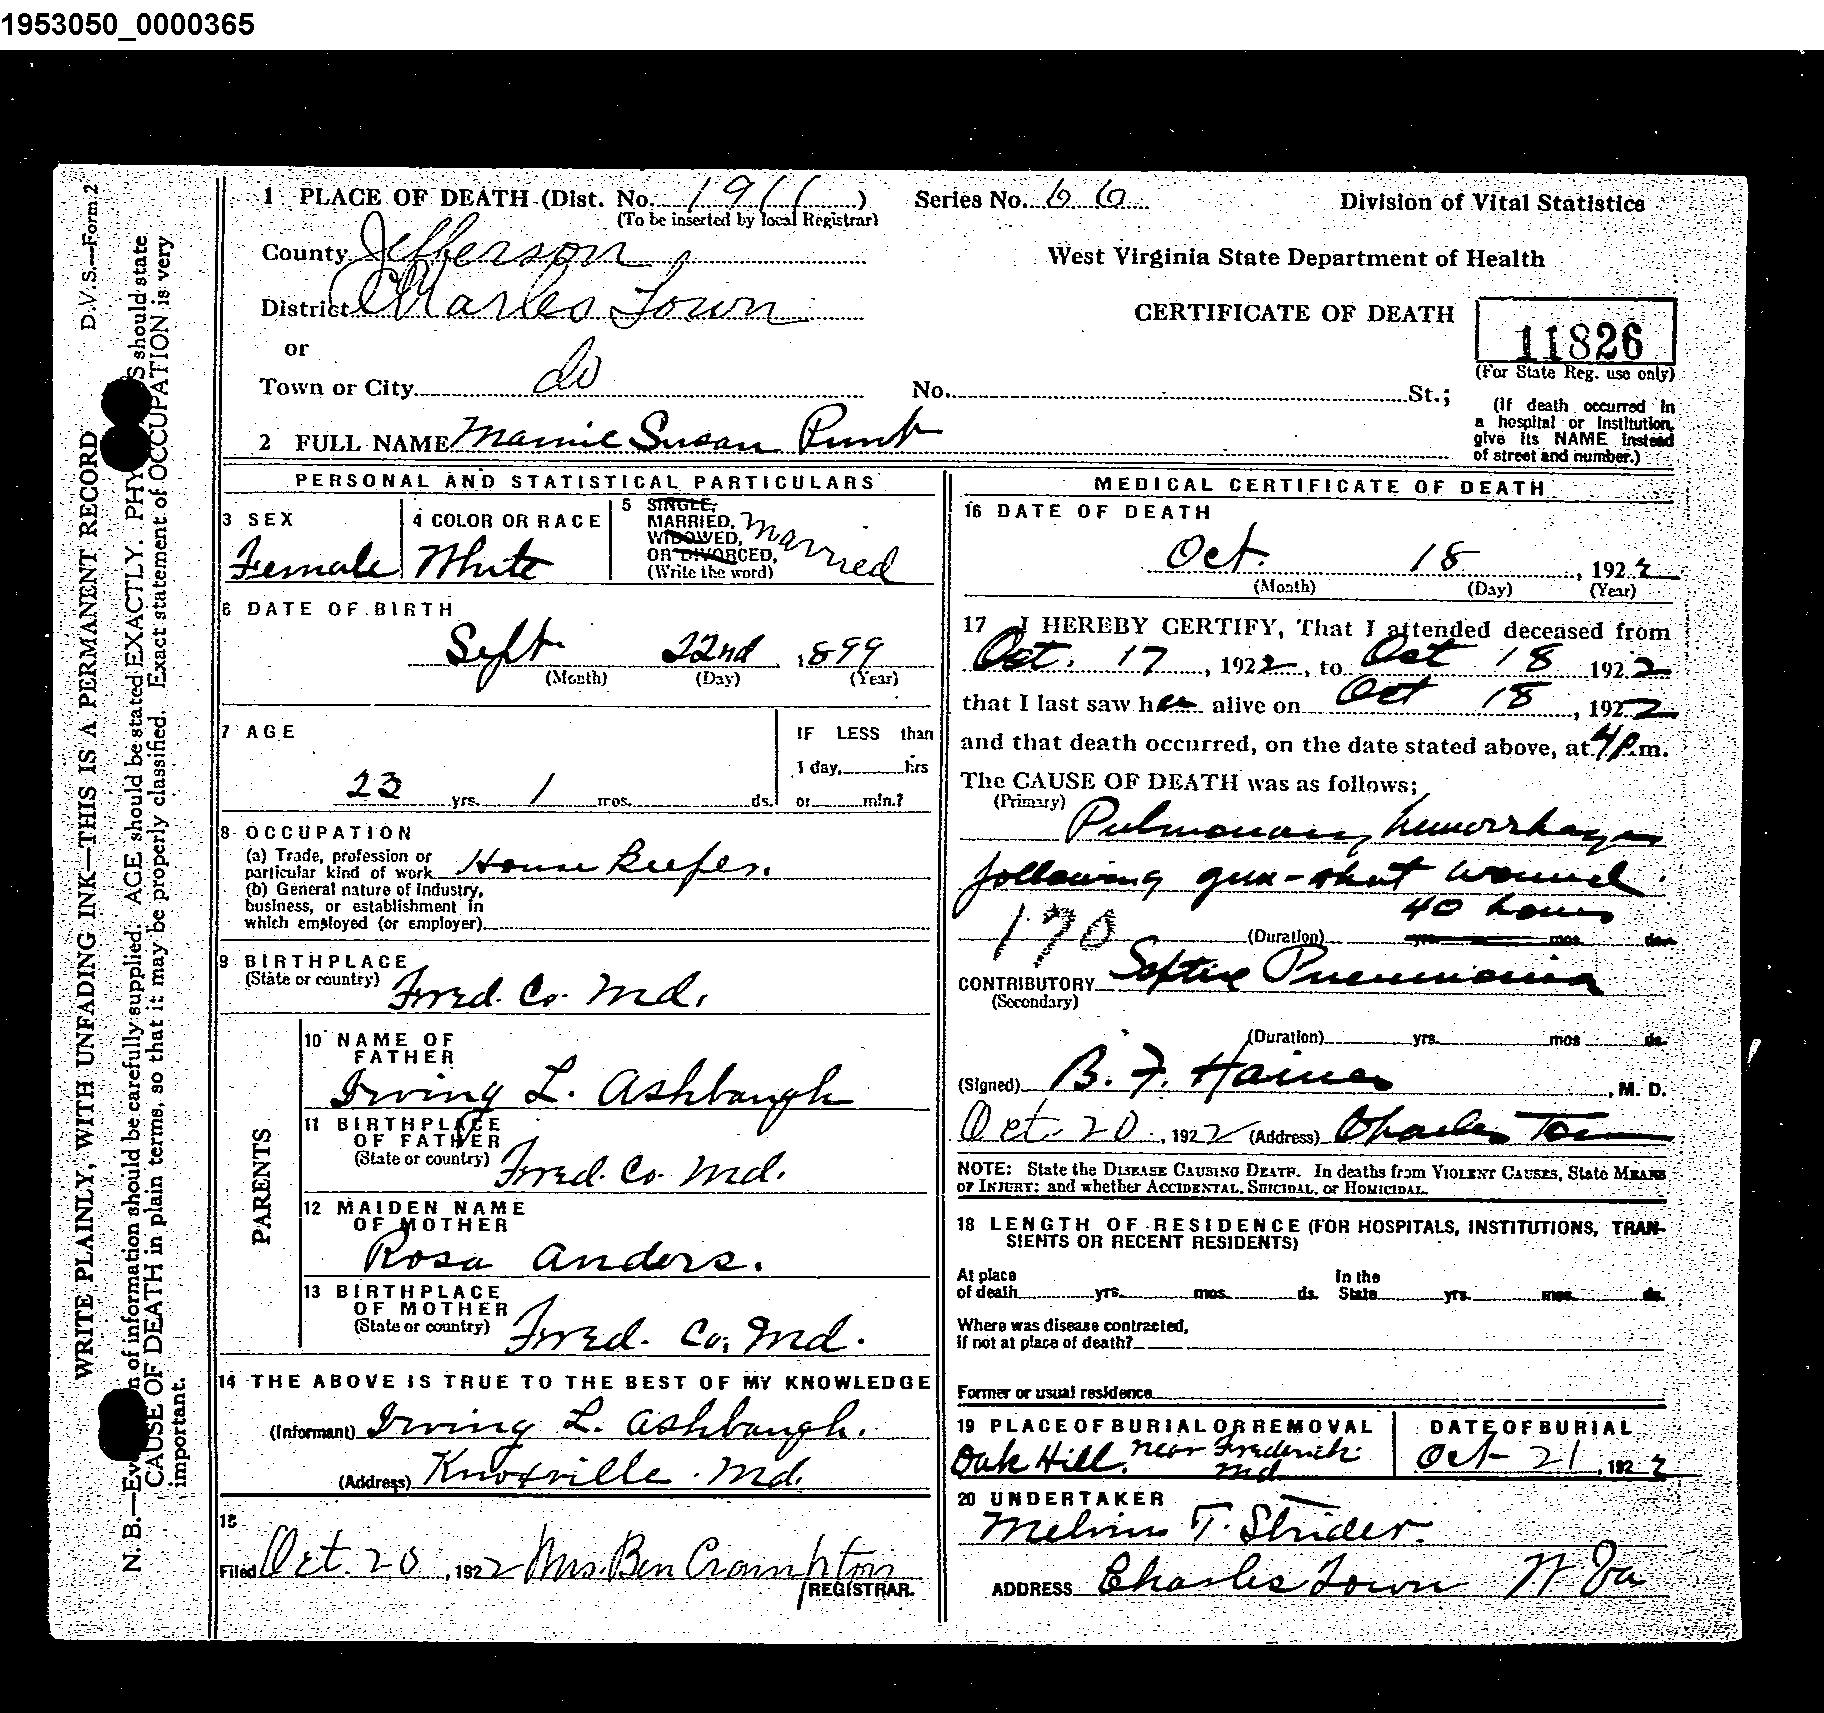 1953050_0000365
D.V.S.—Form 2
WRITE PLAINLY, WITH UNFADING INK—THIS IS A PERMANENT RECORD
N. B.—Ev n of information should be carefully supplied. AGE should be stated EXACTLY. PHY S should state
CAUSE OF DEATH in plain terms, so that it may be properly classified. Exact statement of OCCUPATION is very
important.
1 PLACE OF DEATH (Dist. No. 1911 )
(To be inserted by local Registrar)
Series No. 66
Division of Vital Statistics
County Jefferson
West Virginia State Department of Health
District Charles Town
CERTIFICATE OF DEATH
11826
(For State Reg. use only)
or
Town or City do
No. St.;
(If death occurred in
a hospital or institution,
give its NAME instead
of street and number.)
2 FULL NAME Mamie Susan Punt
PERSONAL AND STATISTICAL PARTICULARS
3 SEX
Female
4 COLOR OR RACE
White
5 SINGLE,
MARRIED,
WIDOWED,
OR DIVORCED,
(Write the word)
Married
6 DATE OF BIRTH
Sept. 22nd 1899
(Month) (Day) (Year)
7 AGE
23 yrs. 1 mos. ds.
IF LESS than
1 day, hrs
or min.?
8 OCCUPATION
(a) Trade, profession or
particular kind of work House Keeper.
(b) General nature of industry,
business, or establishment in
which employed (or employer)
9 BIRTHPLACE
(State or country) Fred. Co. Md.
PARENTS
10 NAME OF
FATHER
Irving L. Ashbaugh
11 BIRTHPLACE
OF FATHER
(State or country) Fred. Co. Md.
12 MAIDEN NAME
OF MOTHER
Rosa Anders.
13 BIRTHPLACE
OF MOTHER
(State or country) Fred. Co. Md.
14 THE ABOVE IS TRUE TO THE BEST OF MY KNOWLEDGE
(Informant) Irving L. Ashbaugh.
(Address) Knoxville. Md.
15
Filed Oct. 20, 1922 Mrs. Ben Crampton
REGISTRAR.
MEDICAL CERTIFICATE OF DEATH
16 DATE OF DEATH
Oct. 18, 1922
(Month) (Day) (Year)
17 I HEREBY CERTIFY, That I attended deceased from
Oct. 17, 1922, to Oct 18 1922
that I last saw her alive on Oct 18, 1922
and that death occurred, on the date stated above, at 4 P.m.
The CAUSE OF DEATH was as follows;
(Primary)
Pulmonary hemorrhage
following gun-shot wound.
40 hours
190
(Duration) yrs. mos. ds.
CONTRIBUTORY Septic Pneumonia
(Secondary)
(Duration) yrs. mos ds.
(Signed) B. F. Haines, M. D.
Oct. 20, 1922 (Address) Charles Town
NOTE: State the DISEASE CAUSING DEATH. In deaths from VIOLENT CAUSES, State MEANS
OF INJURY; and whether ACCIDENTAL, SUICIDAL, or HOMICIDAL.
18 LENGTH OF RESIDENCE (FOR HOSPITALS, INSTITUTIONS, TRAN-
SIENTS OR RECENT RESIDENTS)
At place
of death yrs. mos. ds.
In the
State yrs. mos. ds.
Where was disease contracted,
if not at place of death?
Former or usual residence
19 PLACE OF BURIAL OR REMOVAL
Oak Hill. near Frederick
Md
DATE OF BURIAL
Oct 21, 1922
20 UNDERTAKER
Melvin T. Strider.
ADDRESS Charles Town W Va